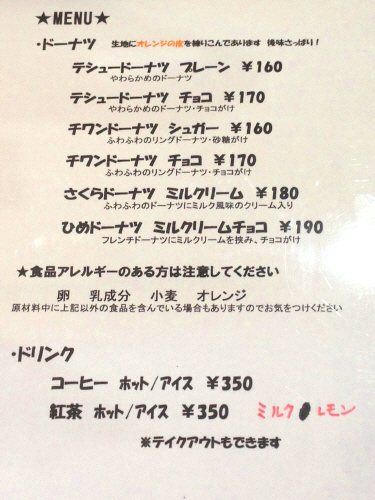 ★MENU★
・ドーナツ 生地にオレンジの皮を練りこんであります 後味さっぱり！
テシュードーナツ プレーン ￥160
やわらかめのドーナツ
テシュードーナツ チョコ ￥170
やわらかめのドーナツ・チョコがけ
チワンドーナツ シュガー ￥160
ふわふわのリングドーナツ・砂糖がけ
チワンドーナツ チョコ ￥170
ふわふわのリングドーナツ・チョコがけ
さくらドーナツ ミルクリーム ￥180
ふわふわのドーナツにミルク風味のクリーム入り
ひめドーナツ ミルクリームチョコ ￥190
フレンチドーナツにミルクリームを挟み、チョコがけ
★食品アレルギーのある方は注意してください
卵 乳成分 小麦 オレンジ
原材料中に上記以外の食品を含んでいる場合もありますのでお気をつけください
・ドリンク
コーヒー ホット/アイス ￥350
紅茶 ホット/アイス ￥350 ミルク レモン
※テイクアウトもできます